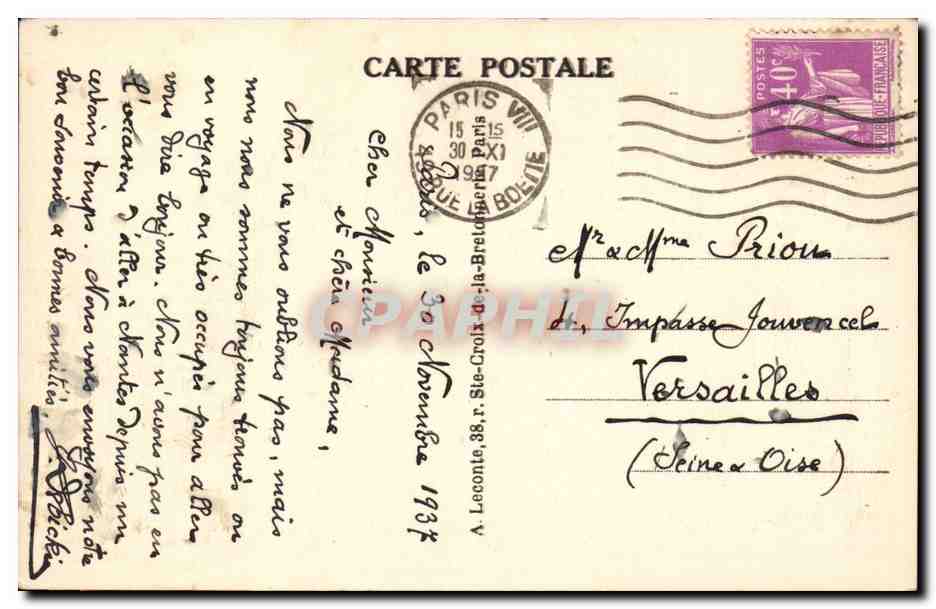 CARTE POSTALE
POSTES
40c
REPUBLIQUE-FRANÇAISE
PARIS VIII
15 15
30 XI
1937
49 RUE LA BOETIE
Paris, le 30 Novembre 1937
Cher Monsieur
et chère Madame,
Nous ne vous oublions pas, mais
nous nous sommes toujours trouvés ou
en voyage ou très occupés pour aller
vous dire bonjour. Nous n'avons pas eu
l'occasion d'aller à Nantes depuis un
certain temps. Nous vous envoyons notre
bon souvenir & bonnes amitiés.
A. Leconte, 38, r. Ste-Croix-de-la-Bretonnerie, Paris
Mr & Mme Priou
4, Impasse Jouvencel
Versailles
(Seine & Oise)
CPAPHIL